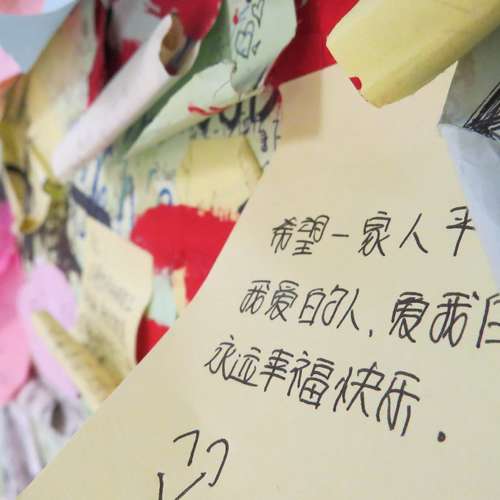 希望一家人平
我爱的人,爱我的
永远幸福快乐.